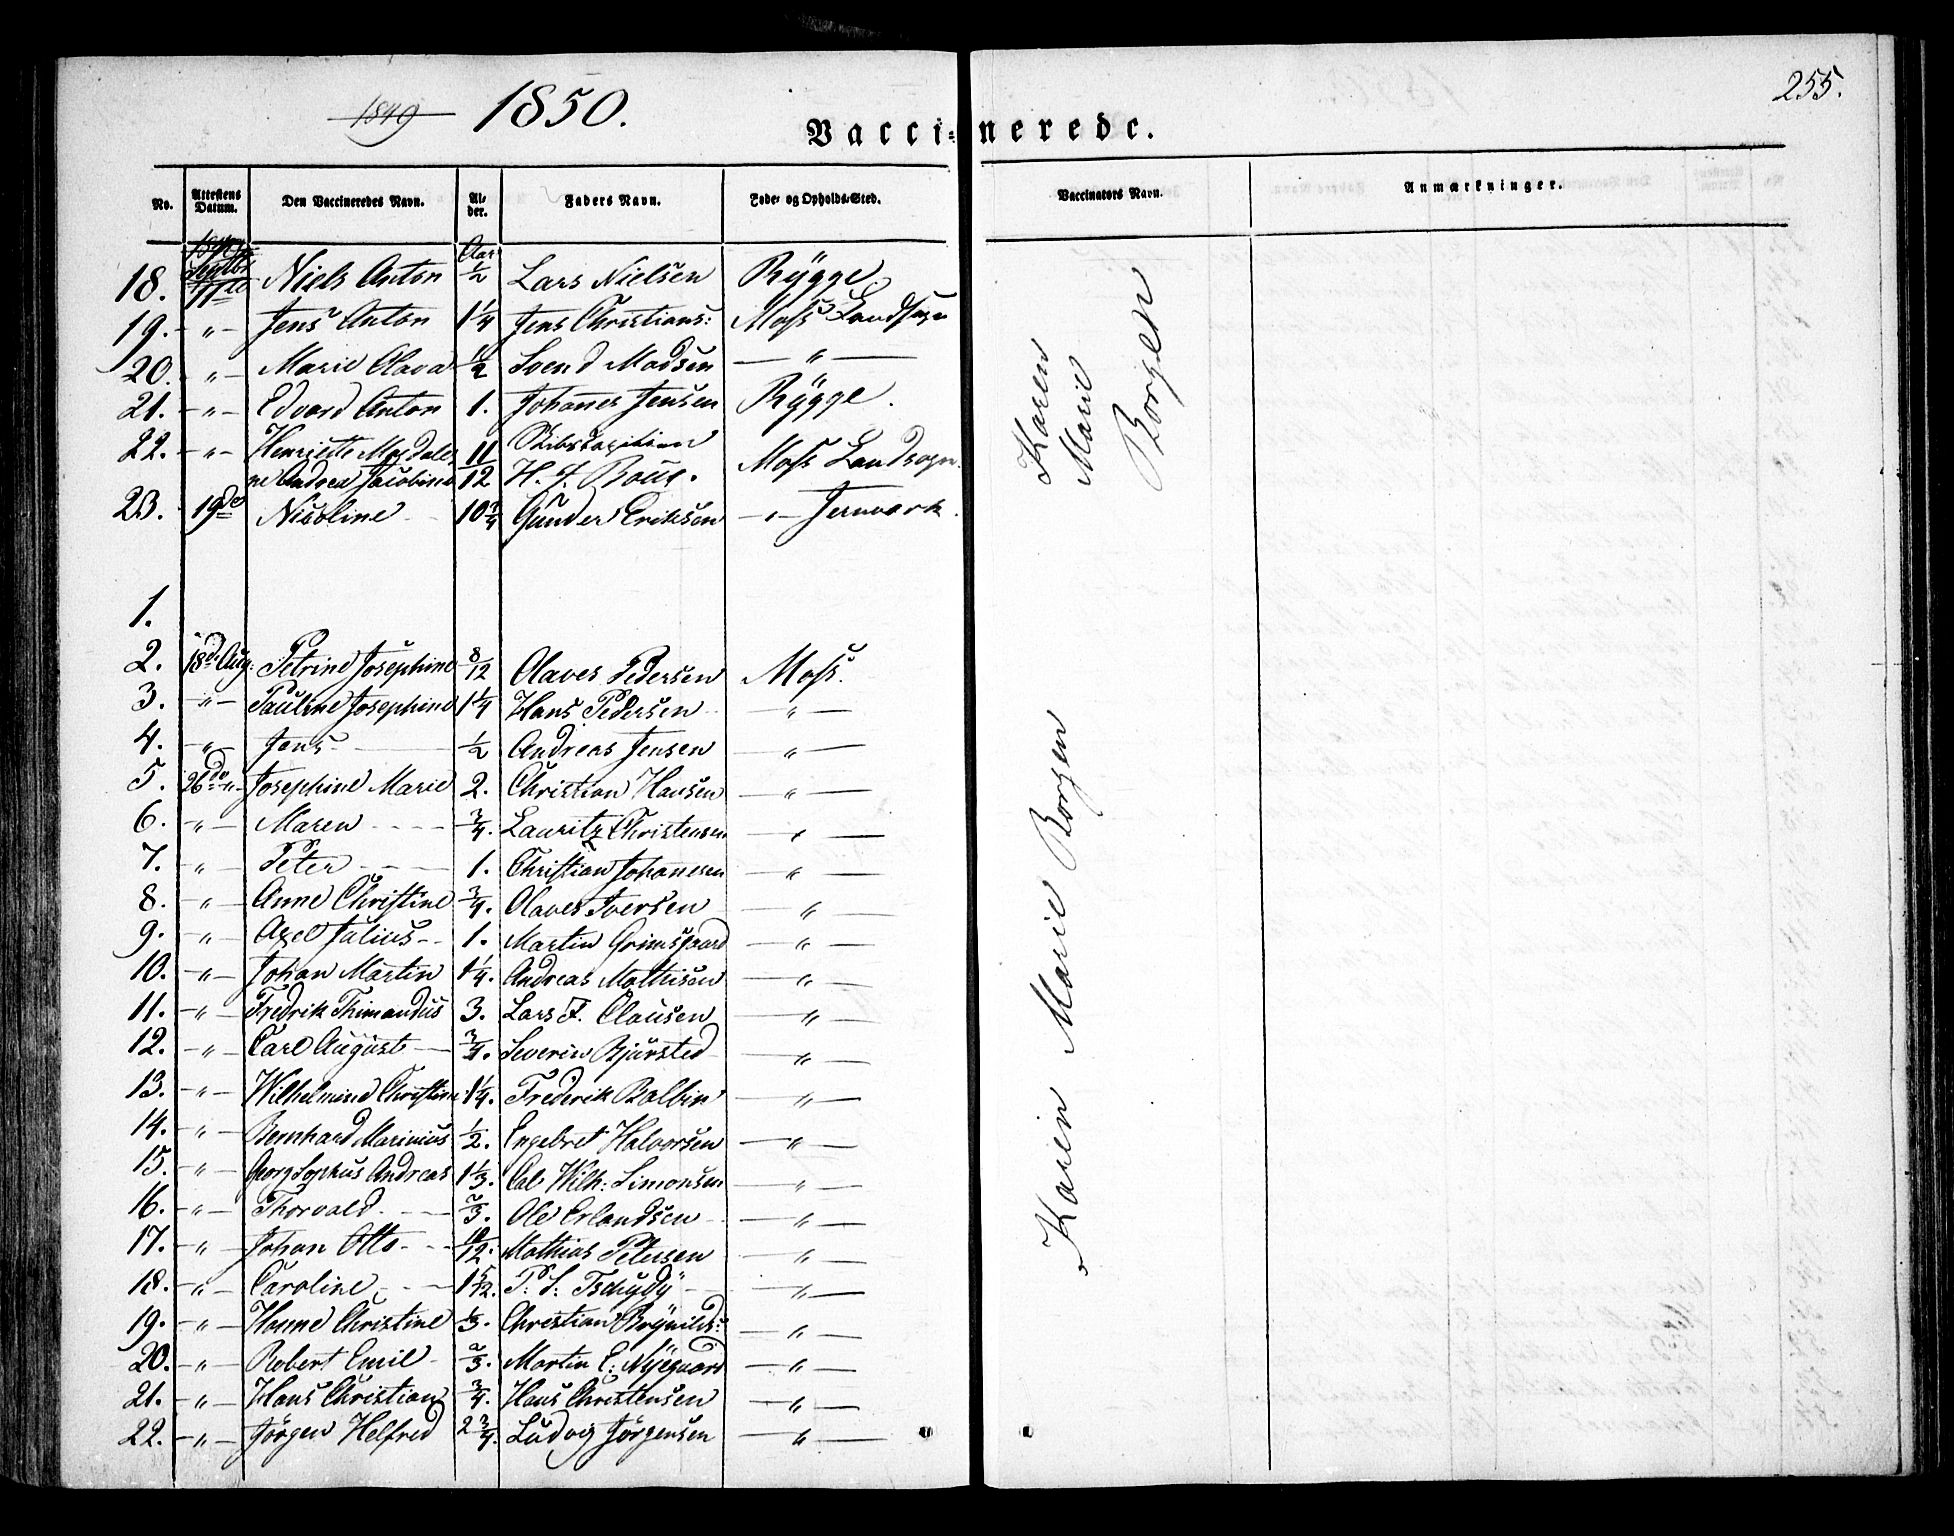 1849 1850.
255.
Vaccinerede.
No. Attestens Datum. Den Vaccineredes Navn. Alder. Faders Navn. Føde- og Opholds-Sted. Vaccinators Navn. Anmærkninger.
Aar
18. 11te Niels Anton 1/2 Lars Nielsen Rÿgge
19. - " - Jens Anton 1 1/4 Jens Christians: Moss Landsogn
20. - " - Marie Olava 1/2 Svend Madsen — " —
21. - " - Edvard Anton 1. Johannes Jensen Rÿgge.
22. - " - Henriette Magdale- 11/12 Skibscapitain Moss Landsogn.
ne Andrea Jacobine H. J.
23. 19de Nicoline 10 3/4 Gunder Eriksen - " - Jernværk.
Karen Marie Borgen
1.
2. 18de Aug: Petrine Josephine 8/12 Olaves Pedersen Moss.
3. - " - Pauline Josephine 1 1/4 Hans Pedersen — " —
4. - " - Jens 1/2 Andreas Jensen — " —
5. 26de " Josephine Marie 2. Christian Hansen — " —
6. - " - Maren 3/4. Lauritz Christensen — " —
7. - " - Peter 1. Christian Johannesen — " —
8. - " - Anne Christine 3/4. Olaves Iversen — " —
9. - " - Axel Julius 1. Martin Grimsgaard — " —
10. - " - Johan Martin 1 1/4. Andreas Mathisen — " —
11. - " - Fredrik Thimandus 3. Lars F. Clausen — " —
12. - " - Carl August 3/4. Severin Bjursted — " —
13. - " - Wilhelmine Christine 1 1/4. Frederik Balbin — " —
14. - " - Bernhard Marinius 1/2. Engebret Halvorsen — " —
15. - " - Georg Sophus Andreas 1 1/3. Wilh: Simonsen — " —
16. - " - Thorvald 2/3. Ole Erlandsen — " —
17. - " - Johan Otto 10/12. Mathias Petersen — " —
18. - " - Caroline 1 5/12. P: S: Tschudÿ — " —
19. - " - Hanne Christine 1/3. Christian Brÿnilds: — " —
20. - " - Robert Emil 2/3. Martin E: Nÿegaard — " —
21. - " - Hans Christian 3/4. Hans Christensen — " —
22. - " - Jörgen Helfred 2 3/4. Ludvig Jörgensen — " —
Karen Marie Borgen